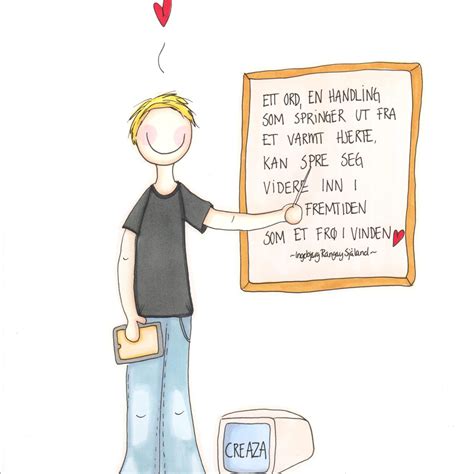 ETT ORD, EN HANDLING
SOM SPRINGER UT FRA
ET VARMT HJERTE,
KAN SPRE SEG
VIDERE INN I
FREMTIDEN
SOM ET FRØ I VINDEN
~Ingebjørg Rangøy Sjåland~
CREAZA